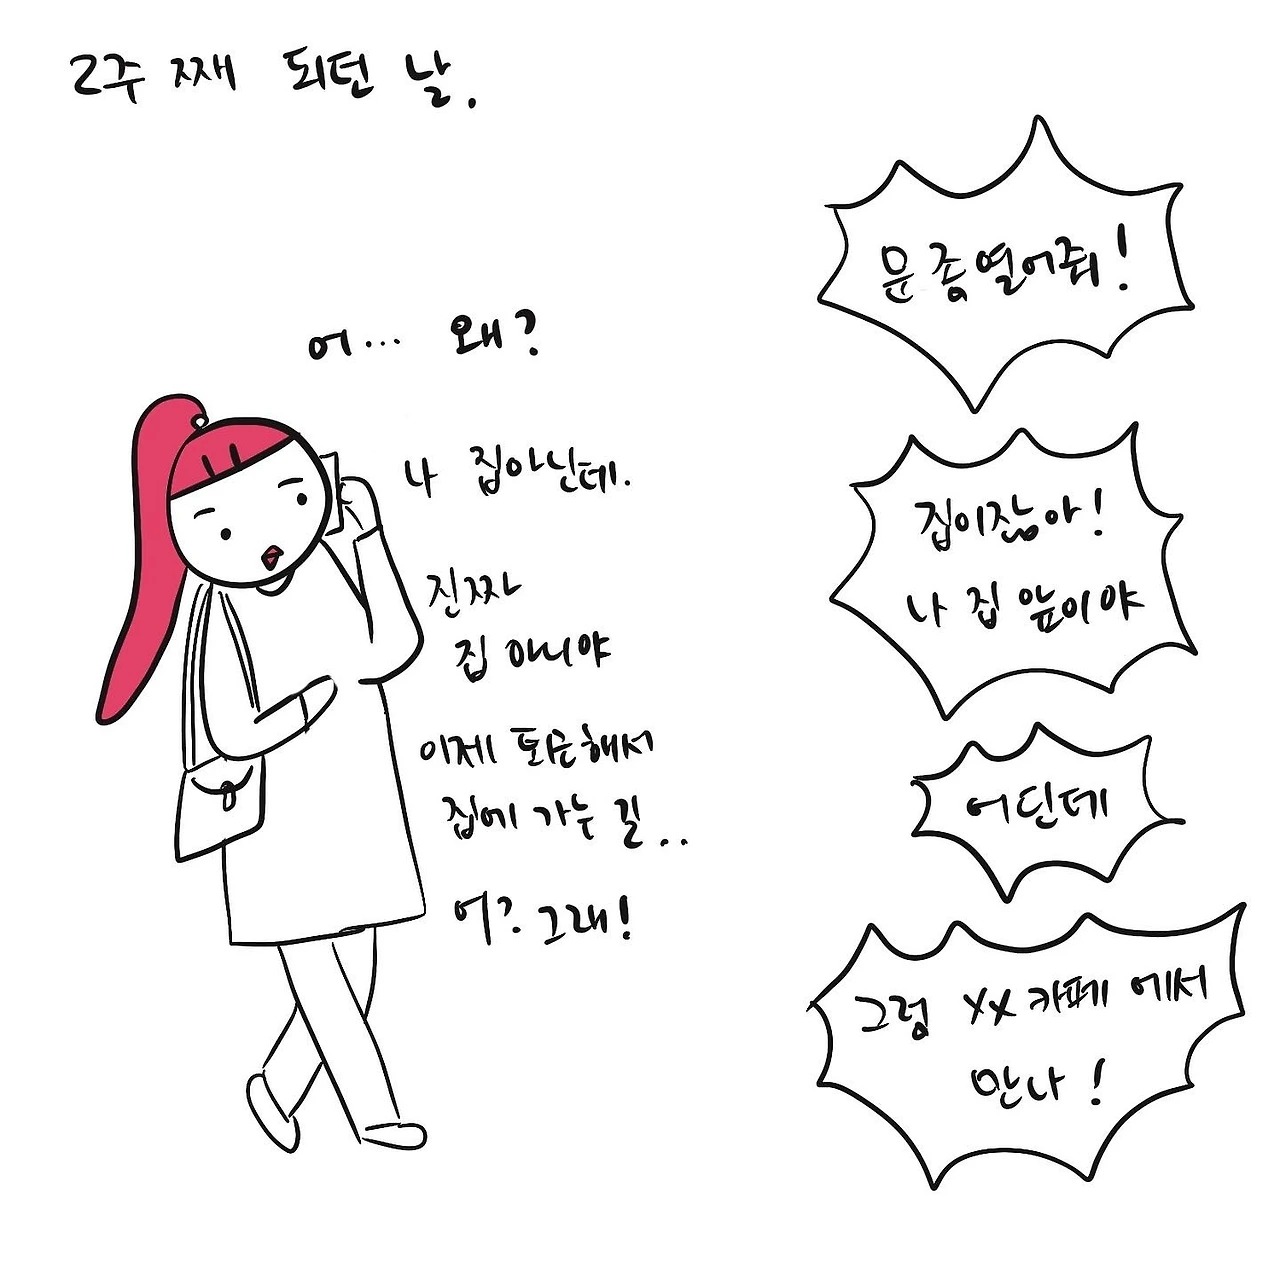 2주 째 되던 날.
어... 왜?
문 좀 열어줘!
나 집아닌데.
집이잖아!
나 집 앞이야
진짜
집 아니야
어딘데
이제 퇴근해서
집에 가는 길..
그럼 XX 카페 에서
만나!
어? 그래!